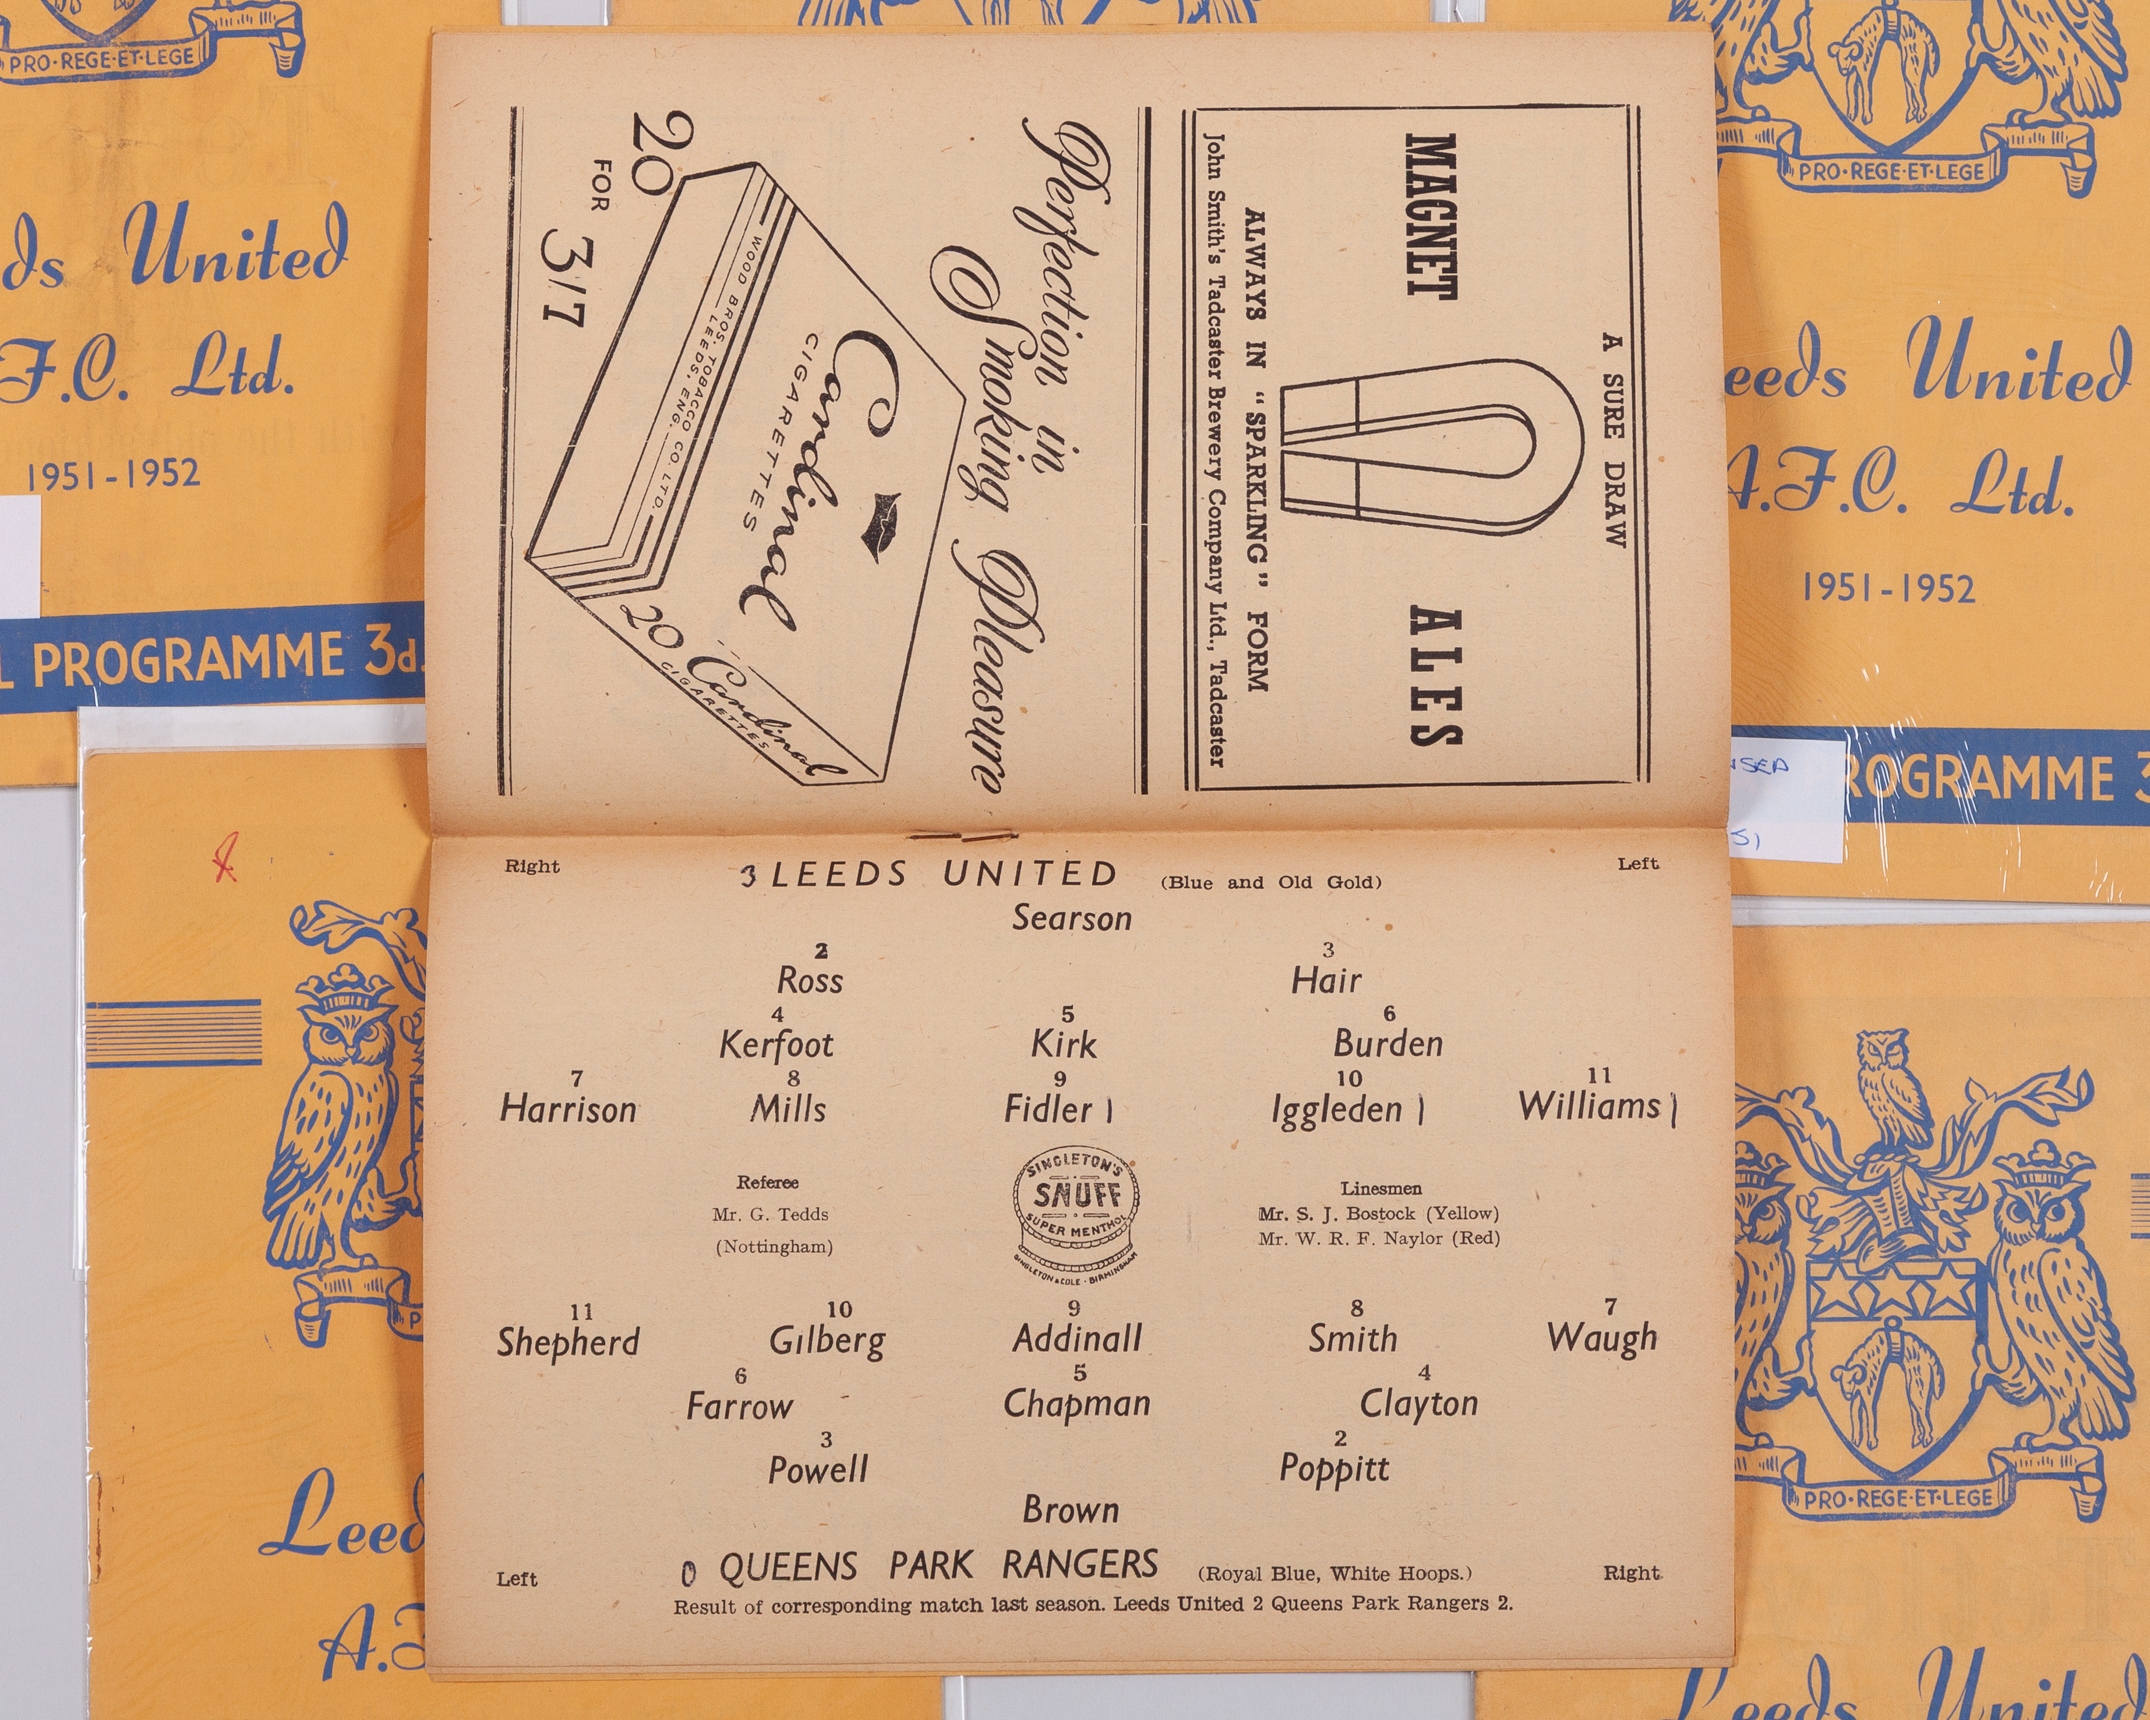 PRO·REGE·ET·LEGE
ds United
F.C. Ltd.
1951-1952
L PROGRAMME 3d.
PRO·REGE·ET·LEGE
eeds United
A.F.C. Ltd.
1951-1952
ROGRAMME 3
A SURE DRAW
MAGNET ALES
ALWAYS IN "SPARKLING" FORM
John Smith's Tadcaster Brewery Company Ltd., Tadcaster
Perfection in
Smoking Pleasure
Cardinal
CIGARETTES
WOOD BROS. TOBACCO CO. LTD.
LEEDS, ENG.
20 Cardinal
CIGARETTES
20
FOR
3/7
Right 3 LEEDS UNITED (Blue and Old Gold) Left
Searson
2 3
Ross Hair
4 5 6
Kerfoot Kirk Burden
7 8 9 10 11
Harrison Mills Fidler 1 Iggleden 1 Williams 1
Referee
Mr. G. Tedds
(Nottingham)
SINGLETON'S
SNUFF
SUPER MENTHOL
SINGLETON & COLE · BIRMINGHAM
Linesmen
Mr. S. J. Bostock (Yellow)
Mr. W. R. F. Naylor (Red)
11 10 9 8 7
Shepherd Gilberg Addinall Smith Waugh
6 5 4
Farrow Chapman Clayton
3 2
Powell Poppitt
Brown
Left 0 QUEENS PARK RANGERS (Royal Blue, White Hoops.) Right
Result of corresponding match last season. Leeds United 2 Queens Park Rangers 2.
P
Leed
A.F
PRO·REGE·ET·LEGE
Leeds United